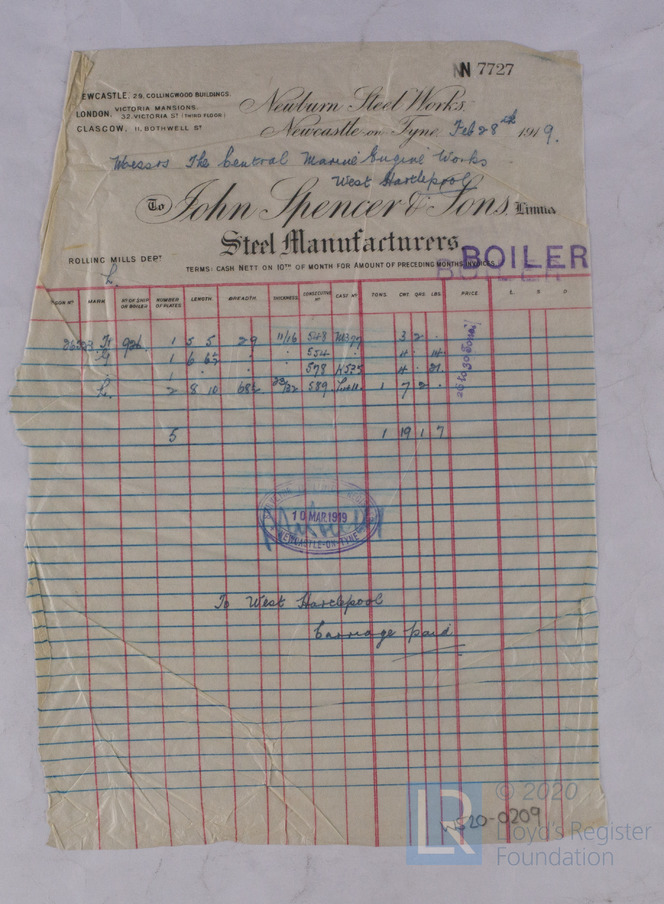 NN 7727
NEWCASTLE. 29, COLLINGWOOD BUILDINGS.
LONDON. VICTORIA MANSIONS. 32, VICTORIA ST (THIRD FLOOR)
GLASGOW. 11, BOTHWELL ST
Newburn Steel Works
Newcastle-on-Tyne, Feb 28th 1919.
Messrs The Central Marine Engine Works
West Hartlepool
To John Spencer & Sons
Steel Manufacturers
ROLLING MILLS DEPT
TERMS: CASH NETT ON 10TH OF MONTH FOR AMOUNT OF PRECEDING MONTHS INVOICES
BOILER
L.
MARK NO OF SHIP OR BOILER NUMBER OF PLATES LENGTH BREADTH THICKNESS CONSECUTIVE NO CAST NO TONS CWT QRS LBS PRICE £ S D
1 5 5 29 11/16 548 3 2 .
1 6 6½ . . 554 4 . 14
. 1 . . . 578 4 . 21
L. 2 8 10 68½ 23/32 589 1 7 2 .
5 1 19 1 7
10 MAR 1919
NEWCASTLE-ON-TYNE
To West Hartlepool
Carriage paid
W520-0209
© 2020
LR
Lloyd's Register
Foundation